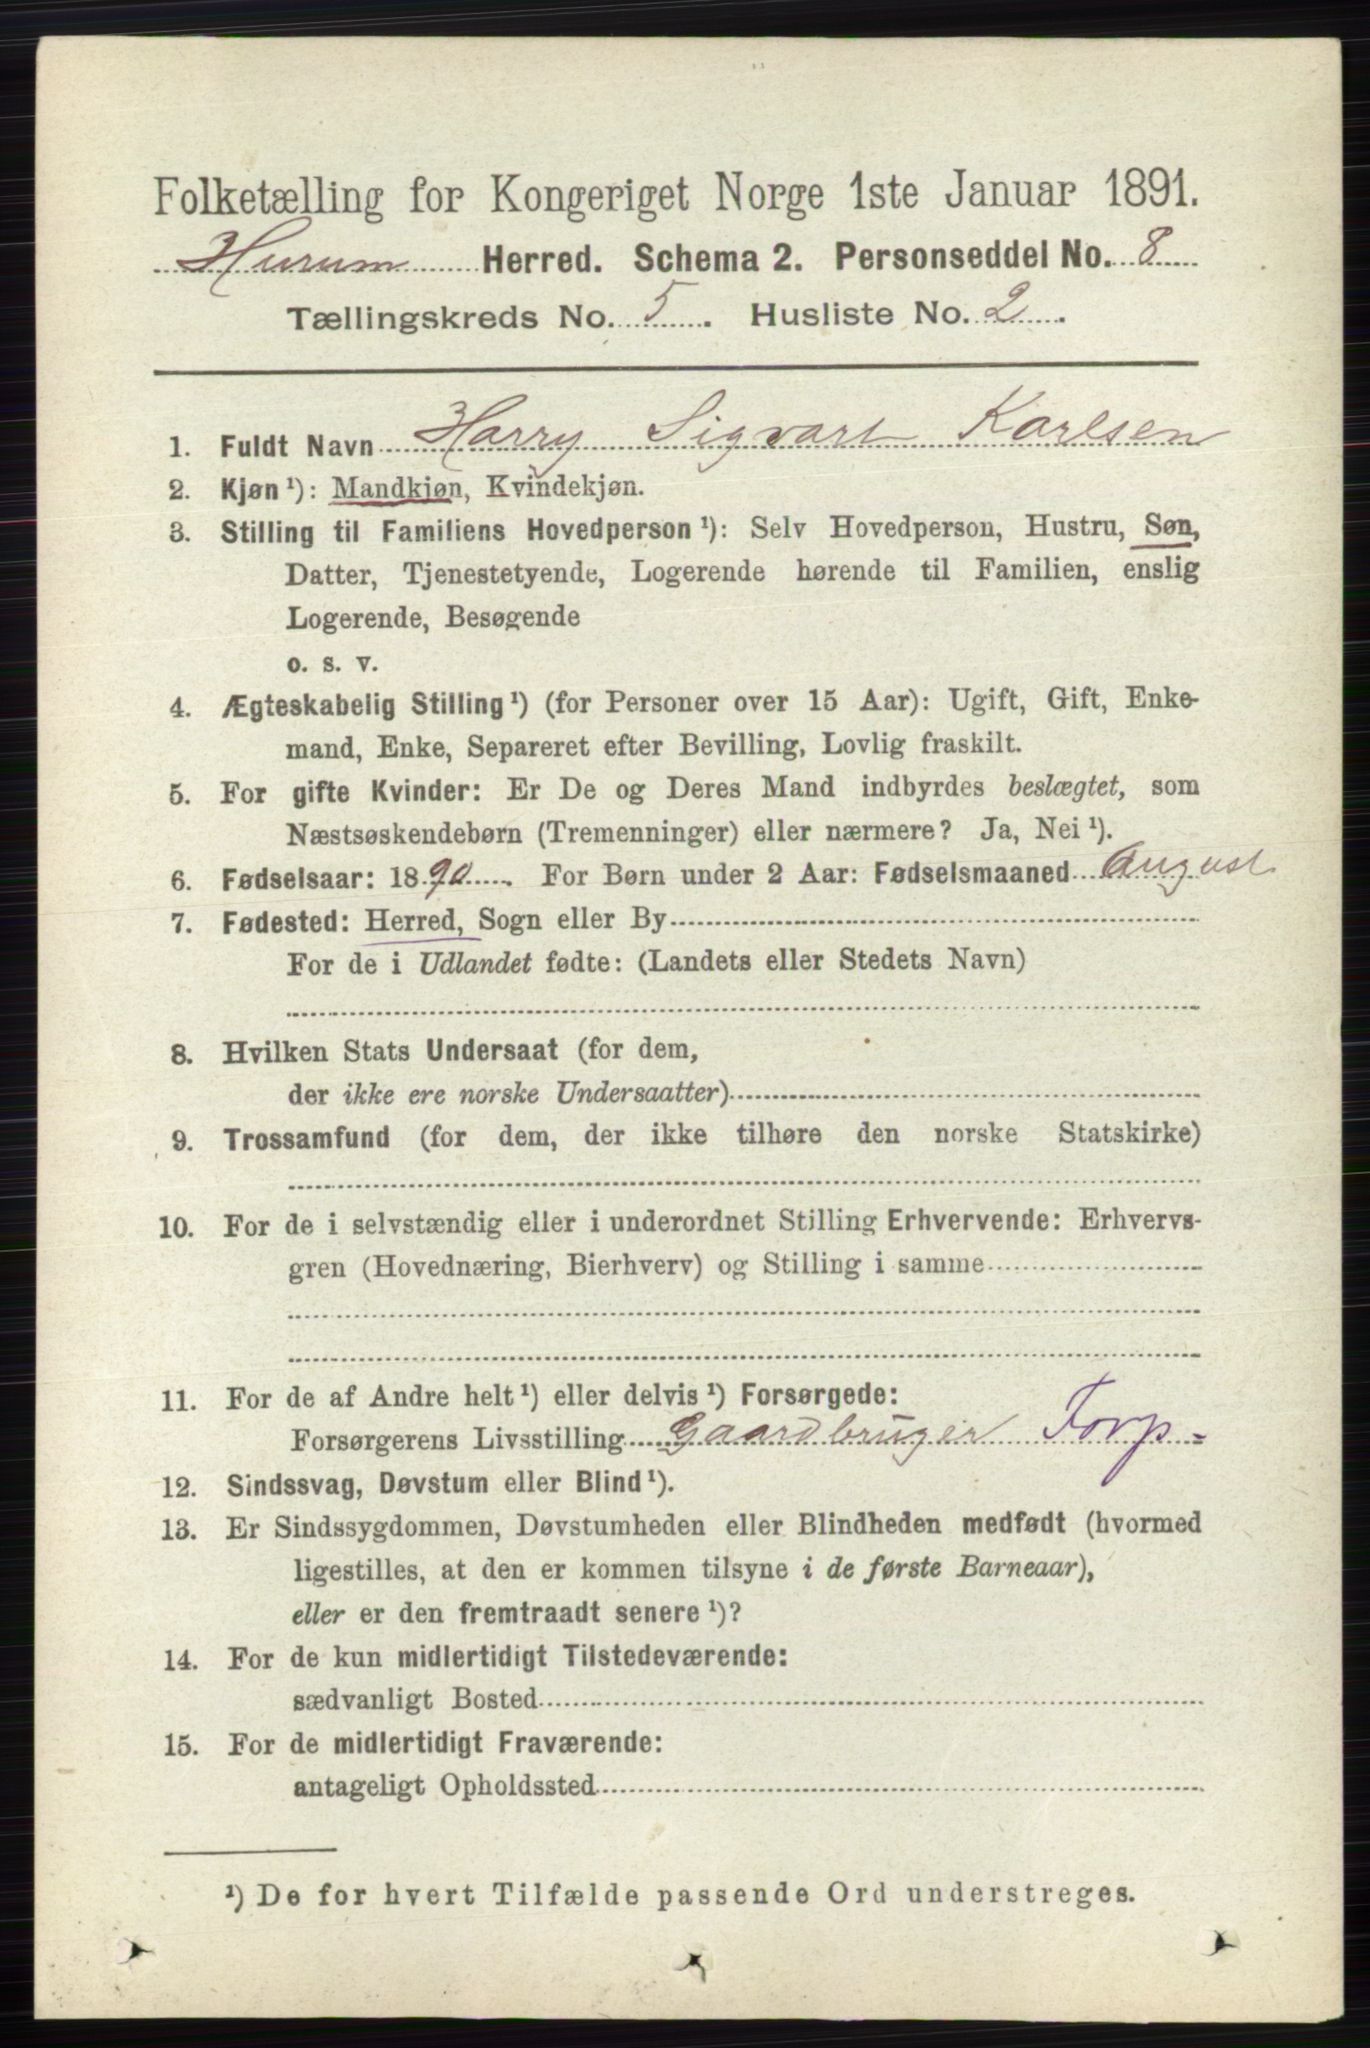 Folketælling for Kongeriget Norge 1ste Januar 1891.
Hurum Herred. Schema 2. Personseddel No. 8
Tællingskreds No. 5. Husliste No. 2.
1. Fuldt Navn Harry Sigvart Karlsen
2. Kjøn ¹): Mandkjøn, Kvindekjøn.
3. Stilling til Familiens Hovedperson ¹): Selv Hovedperson, Hustru, Søn,
Datter, Tjenestetyende, Logerende hørende til Familien, enslig
Logerende, Besøgende
o. s. v.
4. Ægteskabelig Stilling ¹) (for Personer over 15 Aar): Ugift, Gift, Enke-
mand, Enke, Separeret efter Bevilling, Lovlig fraskilt.
5. For gifte Kvinder: Er De og Deres Mand indbyrdes beslægtet, som
Næstsøskendebørn (Tremenninger) eller nærmere? Ja, Nei ¹).
6. Fødselsaar: 1890. For Børn under 2 Aar: Fødselsmaaned August
7. Fødested: Herred, Sogn eller By
For de i Udlandet fødte: (Landets eller Stedets Navn)
8. Hvilken Stats Undersaat (for dem,
der ikke ere norske Undersaatter)
9. Trossamfund (for dem, der ikke tilhøre den norske Statskirke)
10. For de i selvstændig eller i underordnet Stilling Erhvervende: Erhvervs-
gren (Hovednæring, Bierhverv) og Stilling i samme
11. For de af Andre helt ¹) eller delvis ¹) Forsørgede:
Forsørgerens Livsstilling Gaardbruger Torp
12. Sindssvag, Døvstum eller Blind ¹).
13. Er Sindssygdommen, Døvstumheden eller Blindheden medfødt (hvormed
ligestilles, at den er kommen tilsyne i de første Barneaar),
eller er den fremtraadt senere ¹)?
14. For de kun midlertidigt Tilstedeværende:
sædvanligt Bosted
15. For de midlertidigt Fraværende:
antageligt Opholdssted
¹) De for hvert Tilfælde passende Ord understreges.